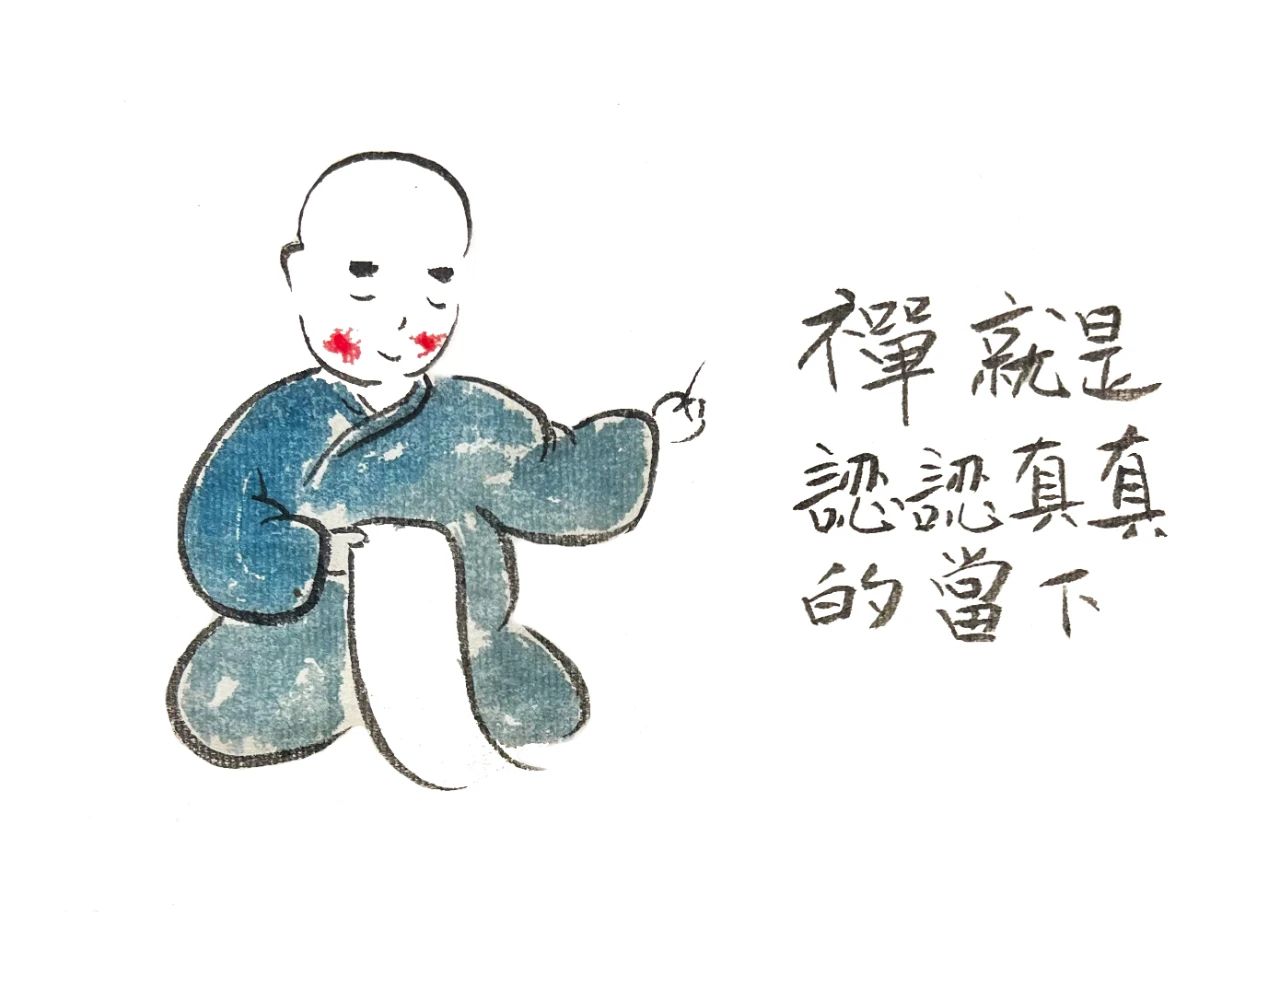 禪就是
認認真真
的當下